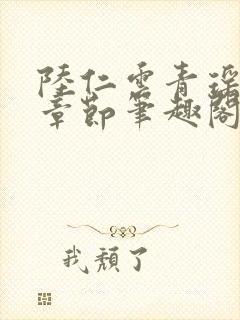 陸仁雲青瑤
章節筆趣閣
我頹了